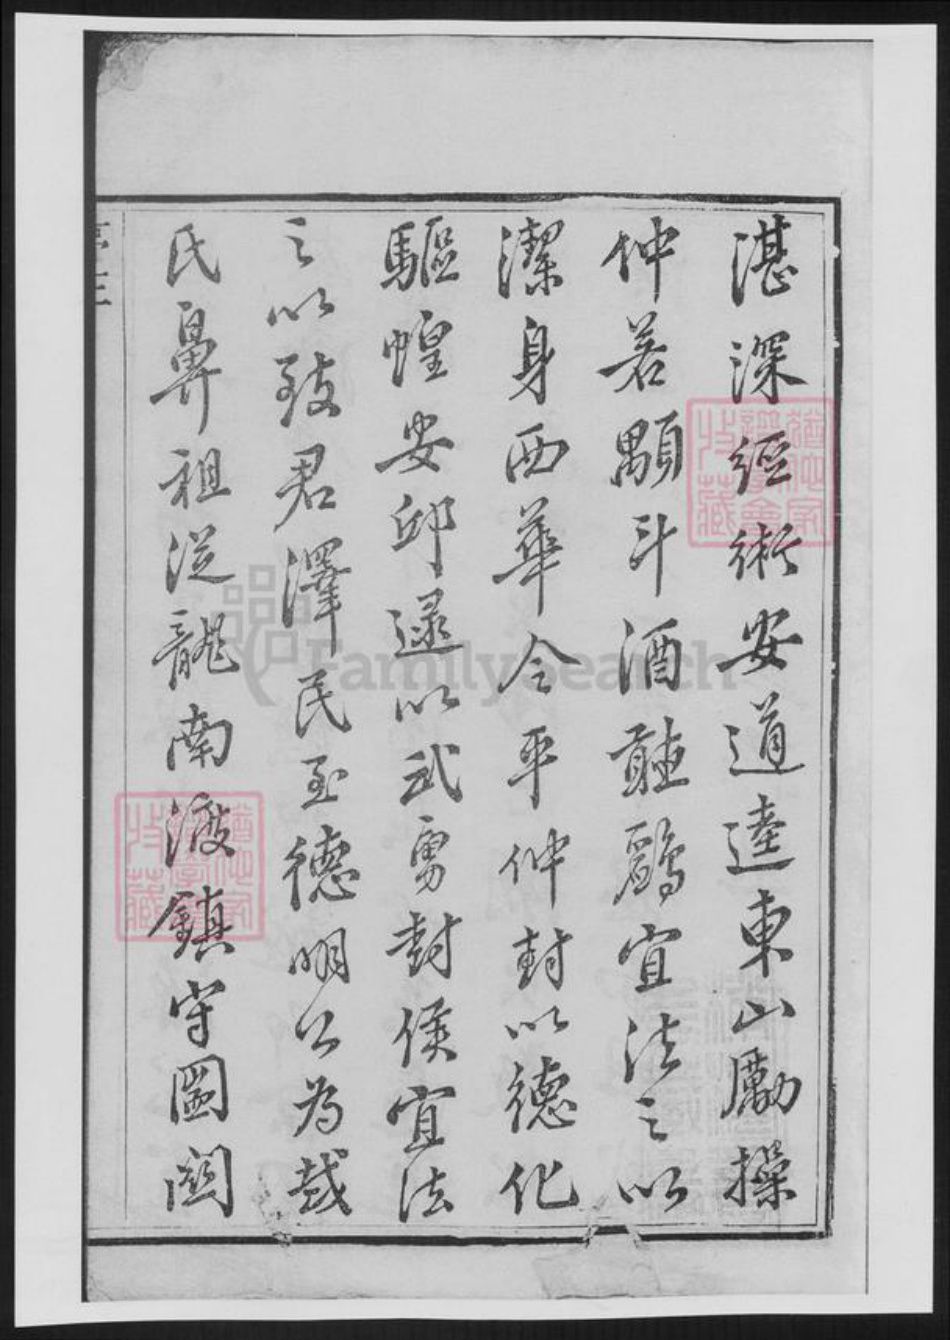 湛深經術安道逵東山勵操
仲若顒斗酒聽鸝宜法之以
潔身西華令平仲封以德化
驅蝗安邱逯以武勇封侯宜法
之以致君澤民至德明公為哉
氏鼻祖從龍南渡鎮守閩關
FamilySearch